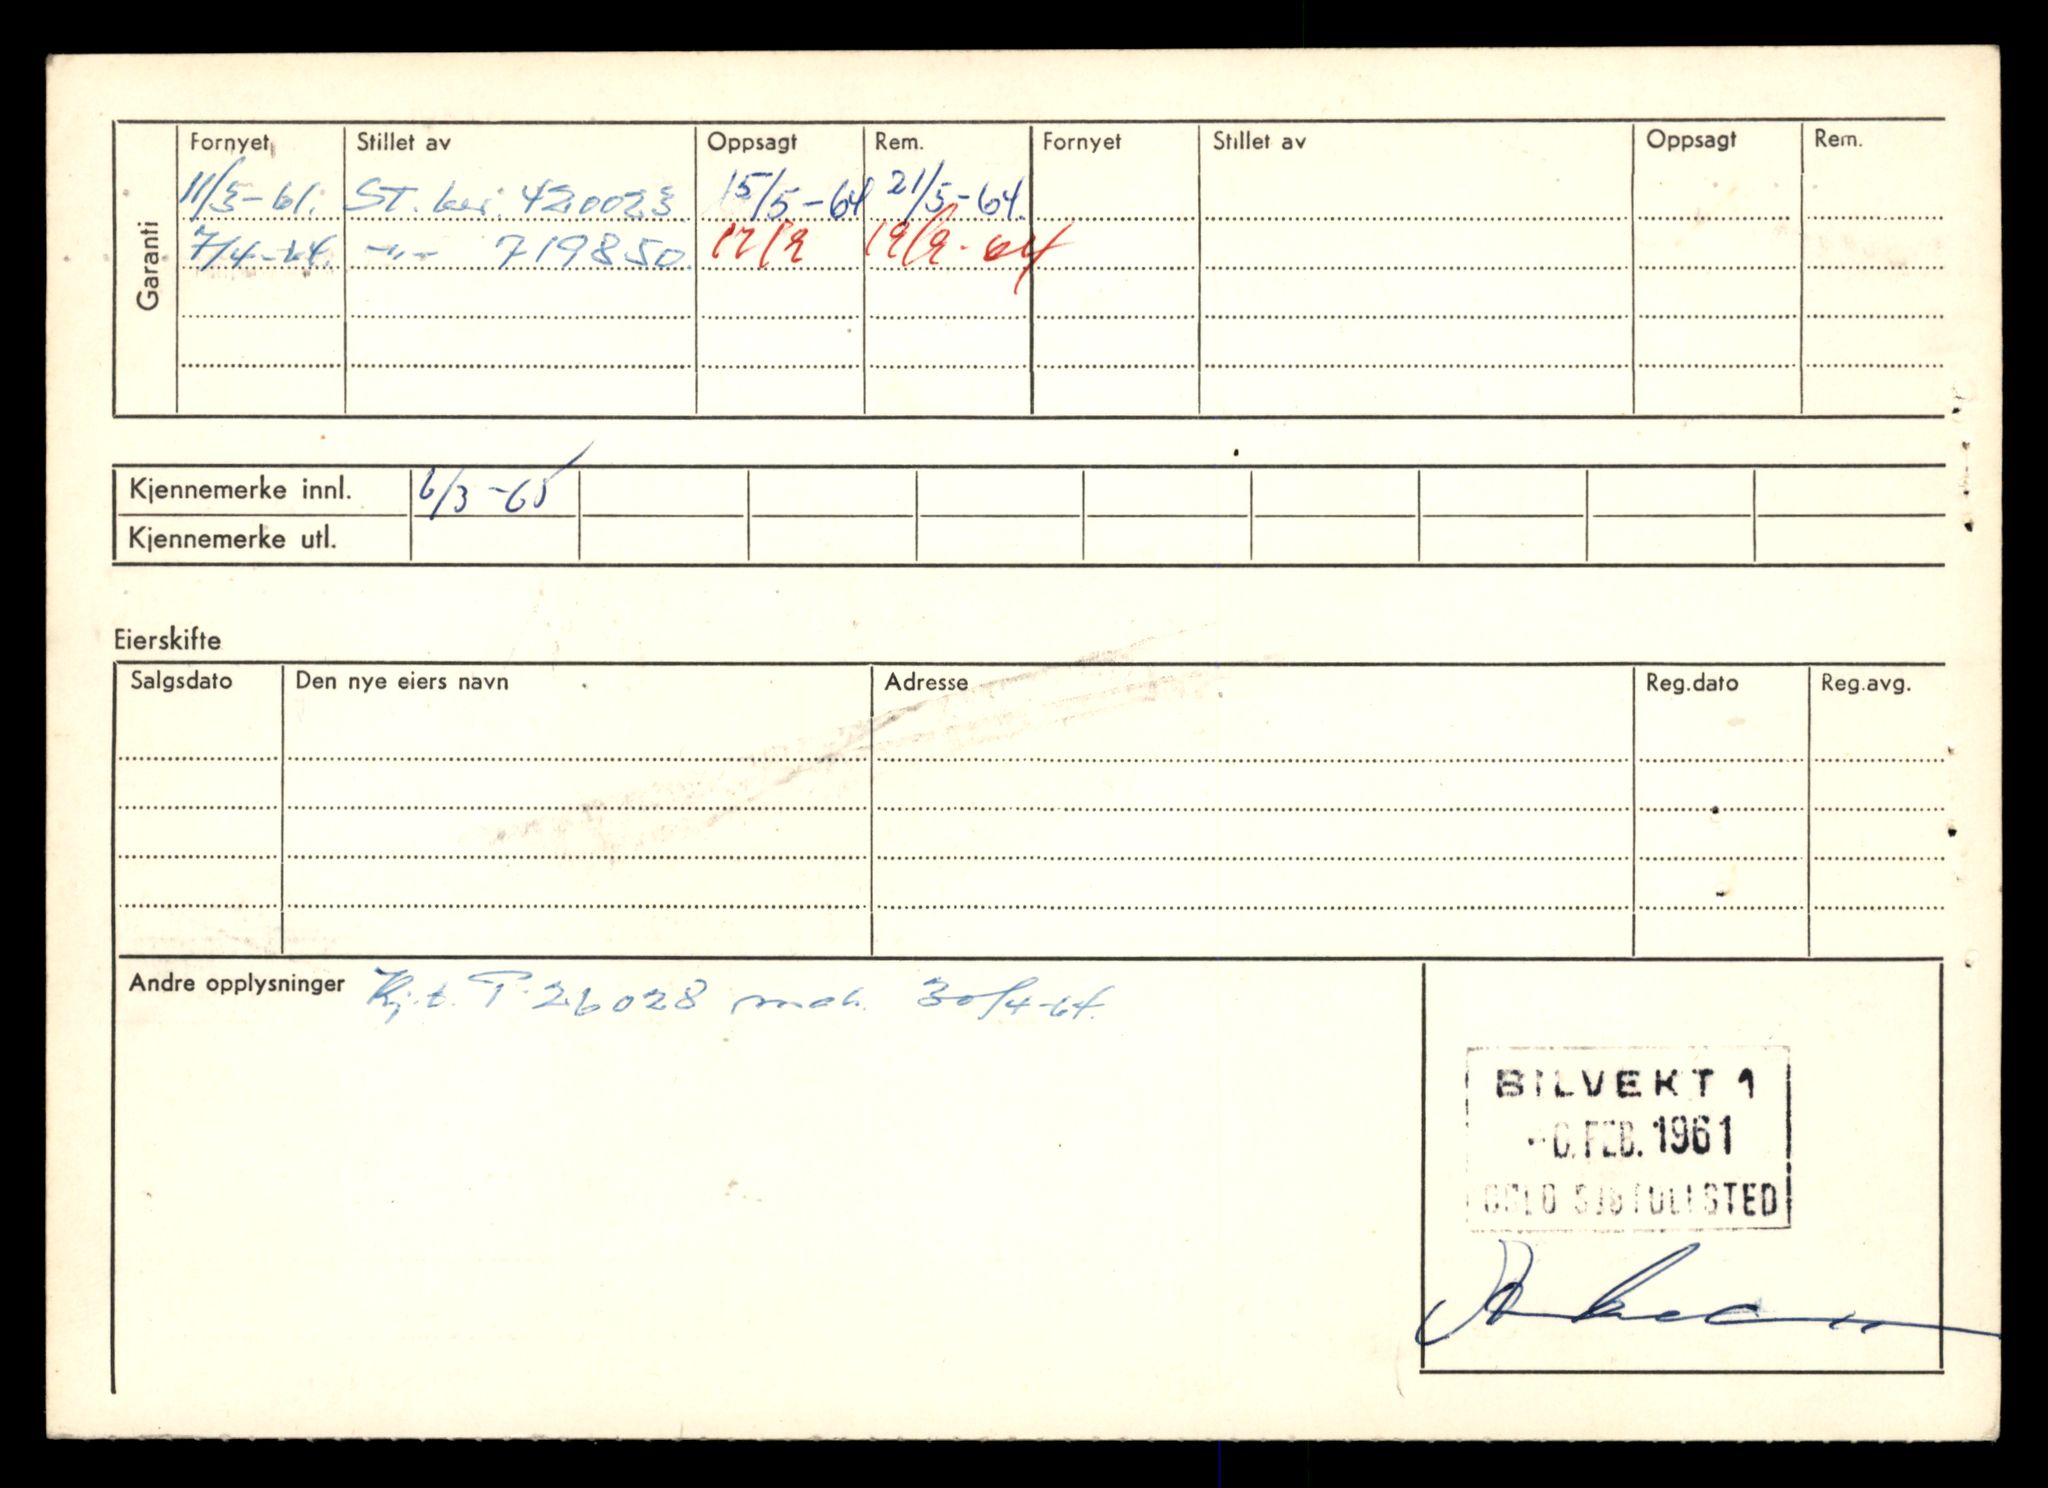 Garanti
Fornyet Stillet av Oppsagt Rem. Fornyet Stillet av Oppsagt Rem.
11/3-61. St. ber. 420023. 15/5-64 21/5-64.
7/4-64. -"- 719850. 17/9 19/9-64
Kjennemerke innl. 6/3-65
Kjennemerke utl.
Eierskifte
Salgsdato Den nye eiers navn Adresse Reg.dato Reg.avg.
Andre opplysninger Kj.t. T-26028 30/4-64.
BILVEKT 1
FEB. 1961
OSLO TOLLSTED